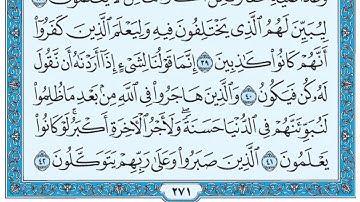 لِيُبَيِّنَ لَهُمُ ٱلَّذِى يَخْتَلِفُونَ فِيهِ وَلِيَعْلَمَ ٱلَّذِينَ كَفَرُوٓا۟
أَنَّهُمْ كَانُوا۟ كَٰذِبِينَ ٣٩ إِنَّمَا قَوْلُنَا لِشَىْءٍ إِذَآ أَرَدْنَٰهُ أَن نَّقُولَ
لَهُۥ كُن فَيَكُونُ ٤٠ وَٱلَّذِينَ هَاجَرُوا۟ فِى ٱللَّهِ مِنۢ بَعْدِ مَا ظُلِمُوا۟
لَنُبَوِّئَنَّهُمْ فِى ٱلدُّنْيَا حَسَنَةً ۖ وَلَأَجْرُ ٱلْءَاخِرَةِ أَكْبَرُ ۚ لَوْ كَانُوا۟
يَعْلَمُونَ ٤١ ٱلَّذِينَ صَبَرُوا۟ وَعَلَىٰ رَبِّهِمْ يَتَوَكَّلُونَ ٤٢
٢٧١